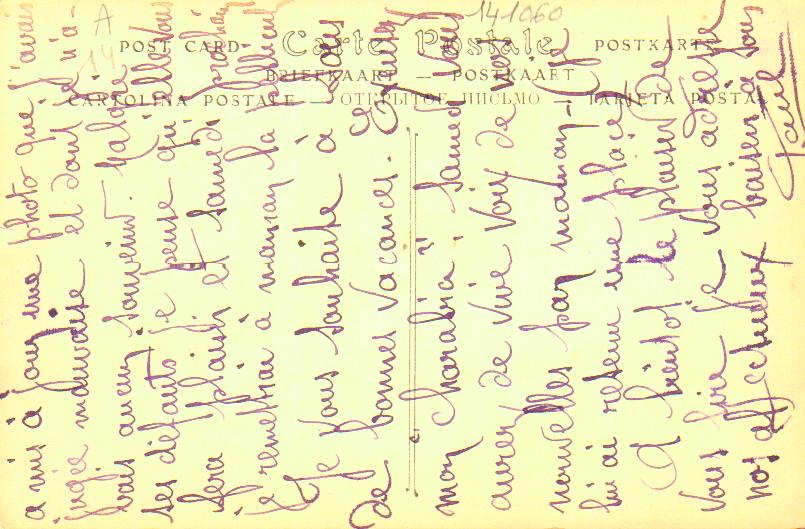 POST CARD Carte Postale POSTKARTE
BRIEFKAART — POSTKAART
CARTOLINA POSTALE — ОТКРЫТОЕ ПИСЬМО — TARJETA POSTAL
A
14
141060
a mis à jour une photo que j'avais
jugée mauvaise et dont je n'a-
vais aucun souvenir. Malgré
ses défauts je pense qu'elle vous
fera plaisir et samedi prochain
je remettrai à maman la pellicule
Je vous souhaite à tous
de bonnes vacances. Excusez
mon charabia ; samedi vous
aurez de vive voix de mes
nouvelles par maman. Je
lui ai retenu une place.
A bientôt le plaisir de
vous lire Je vous adresse
nos affectueux baisers à tous